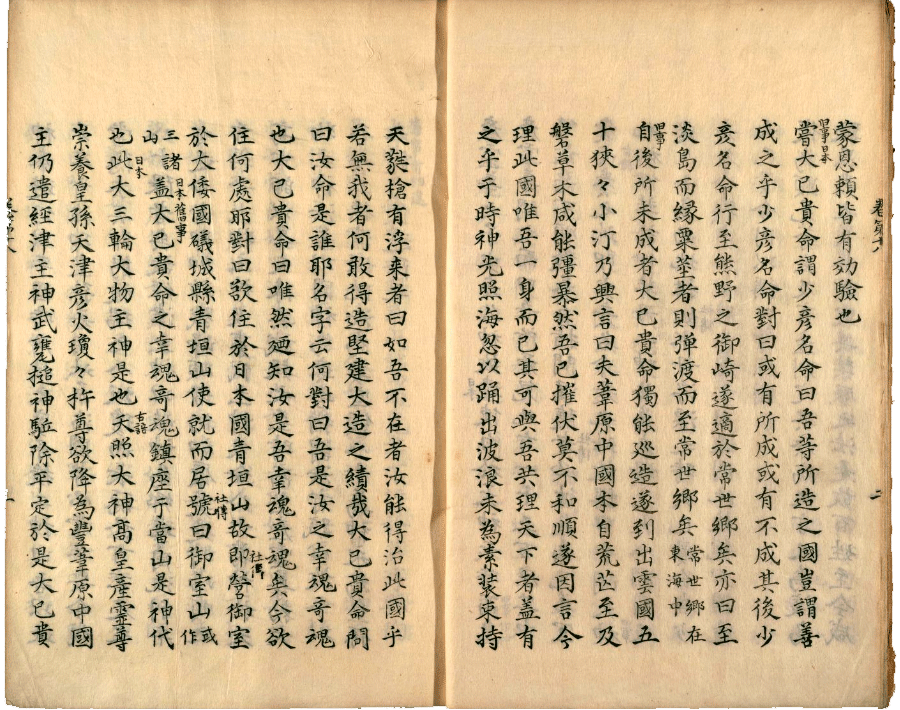 卷第十八
蒙恩頼皆有効驗也
旧事日本
嘗大已貴命謂少彦名命曰吾等所造之國豈謂善
成之乎少彦名命對曰或有所成或有不成其後少
彦名命行至熊野之御崎遂適於常世郷矣亦曰至
淡島而縁粟莖者則弾渡而至常世郷矣常世郷在東海中
旧事
自後所未成者大已貴命獨能巡造遂到出雲國五
十狹々小汀乃興言曰夫葦原中國本自荒芒至及
磐草木咸能彊暴然吾已摧伏莫不和順遂因言今
理此國唯吾一身而已其可與吾共理天下者盖有
之乎于時神光照海忽以踊出波浪末為素装束持
天蕤槍有浮来者曰如吾不在者汝能得治此國乎
若無我者何敢得造堅建大造之績哉大已貴命問
曰汝命是誰耶名字云何對曰吾是汝之幸魂奇魂
也大已貴命曰唯然廼知汝是吾幸魂奇魂矣今欲
住何處耶對曰欲住於日本國青垣山故即營御室
社傳
於大倭國礒城縣青垣山使就而居號曰御室山或作
社傳
三諸山盖大已貴命之幸魂奇魂鎮座于當山是神代
日本舊事
也此大三輪大物主神是也天照大神高皇産靈尊
日本
古語
崇養皇孫天津彦火瓊々杵尊欲降為豐葦原中國
主仍遣經津主神武甕槌神駈除平定於是大已貴